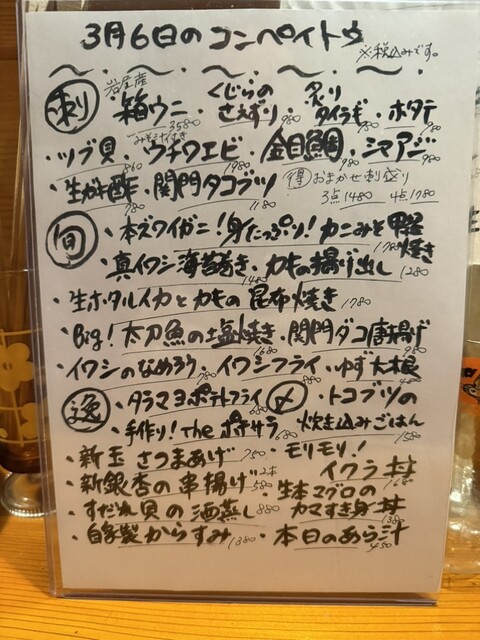 3月6日のコンペイトウ
※税込みです。
刺
岩屋産
・箱ウニ 3580 ・くじらのさえずり 980 ・炙りタイラギ 780 ・ホタテ 780
・ツブ貝 860 ・みそ汁付き ウチワエビ 1980 ・金目鯛 980 ・シマアジ 980
・生ガキ酢 780 ・関門タコブツ 1180 得 おまかせ刺盛り
3点1480 4点1780
旬
・本ズワイガニ!身たっぷり!カニみそ甲羅焼き 1780
・真イワシ海苔巻き 1480 ・カキの揚げ出し 1280
・生ホタルイカとカキの昆布焼き 1780
・Big!太刀魚の塩焼き 1680 ・関門ダコ唐揚げ 980
・イワシのなめろう 780 ・イワシフライ 880 ・ゆず大根
逸
・タラマヨポテトフライ 780
・手作り!theポテサラ 680
・新玉さつまあげ 750
・新銀杏の串揚げ 2本 580
・すだれ貝の酒蒸し 880
・自家製からすみ 1380
〆
・トコブシの
炊き込みごはん 1580
・モリモリ!
イクラ丼
・生本マグロの
カマすき身丼 1380
・本日のあら汁 450